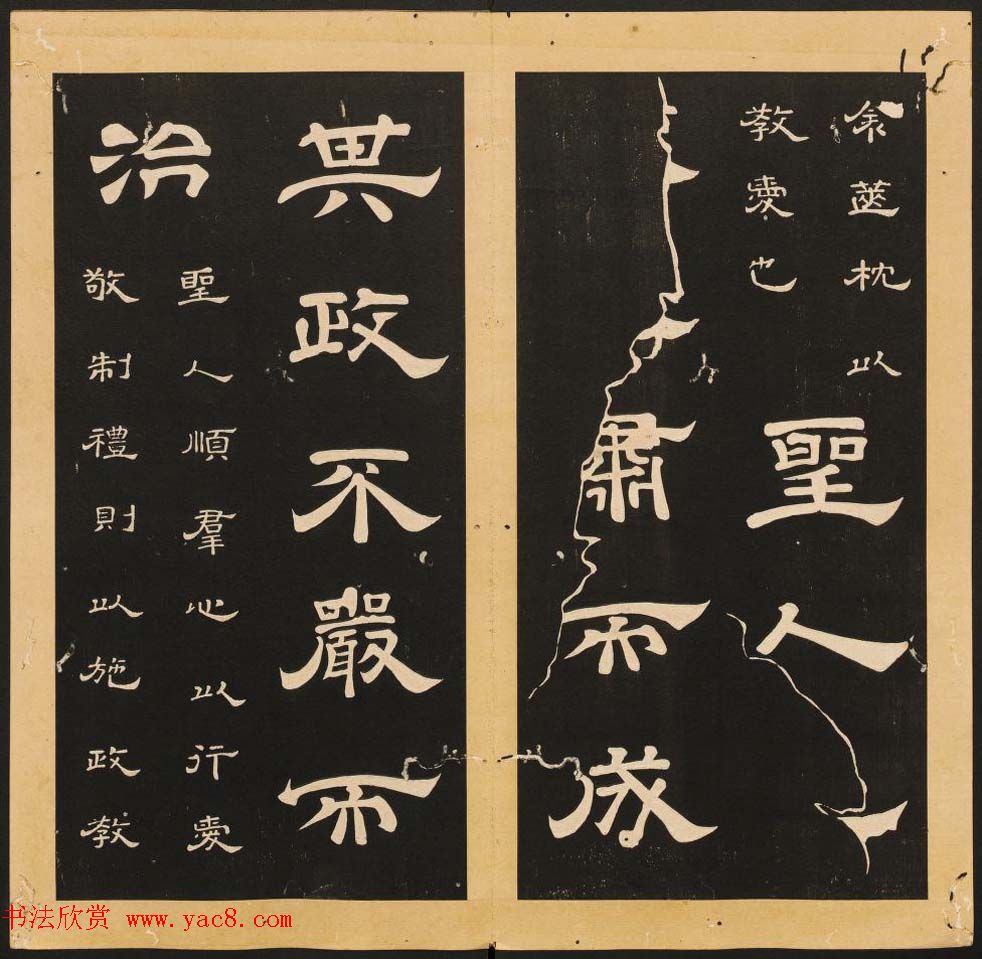 衾篋枕以
教愛也
聖人
肅而成
其政不嚴而
治
聖人順羣心以行愛
敬制禮則以施政教
书法欣赏 www.yac8.com